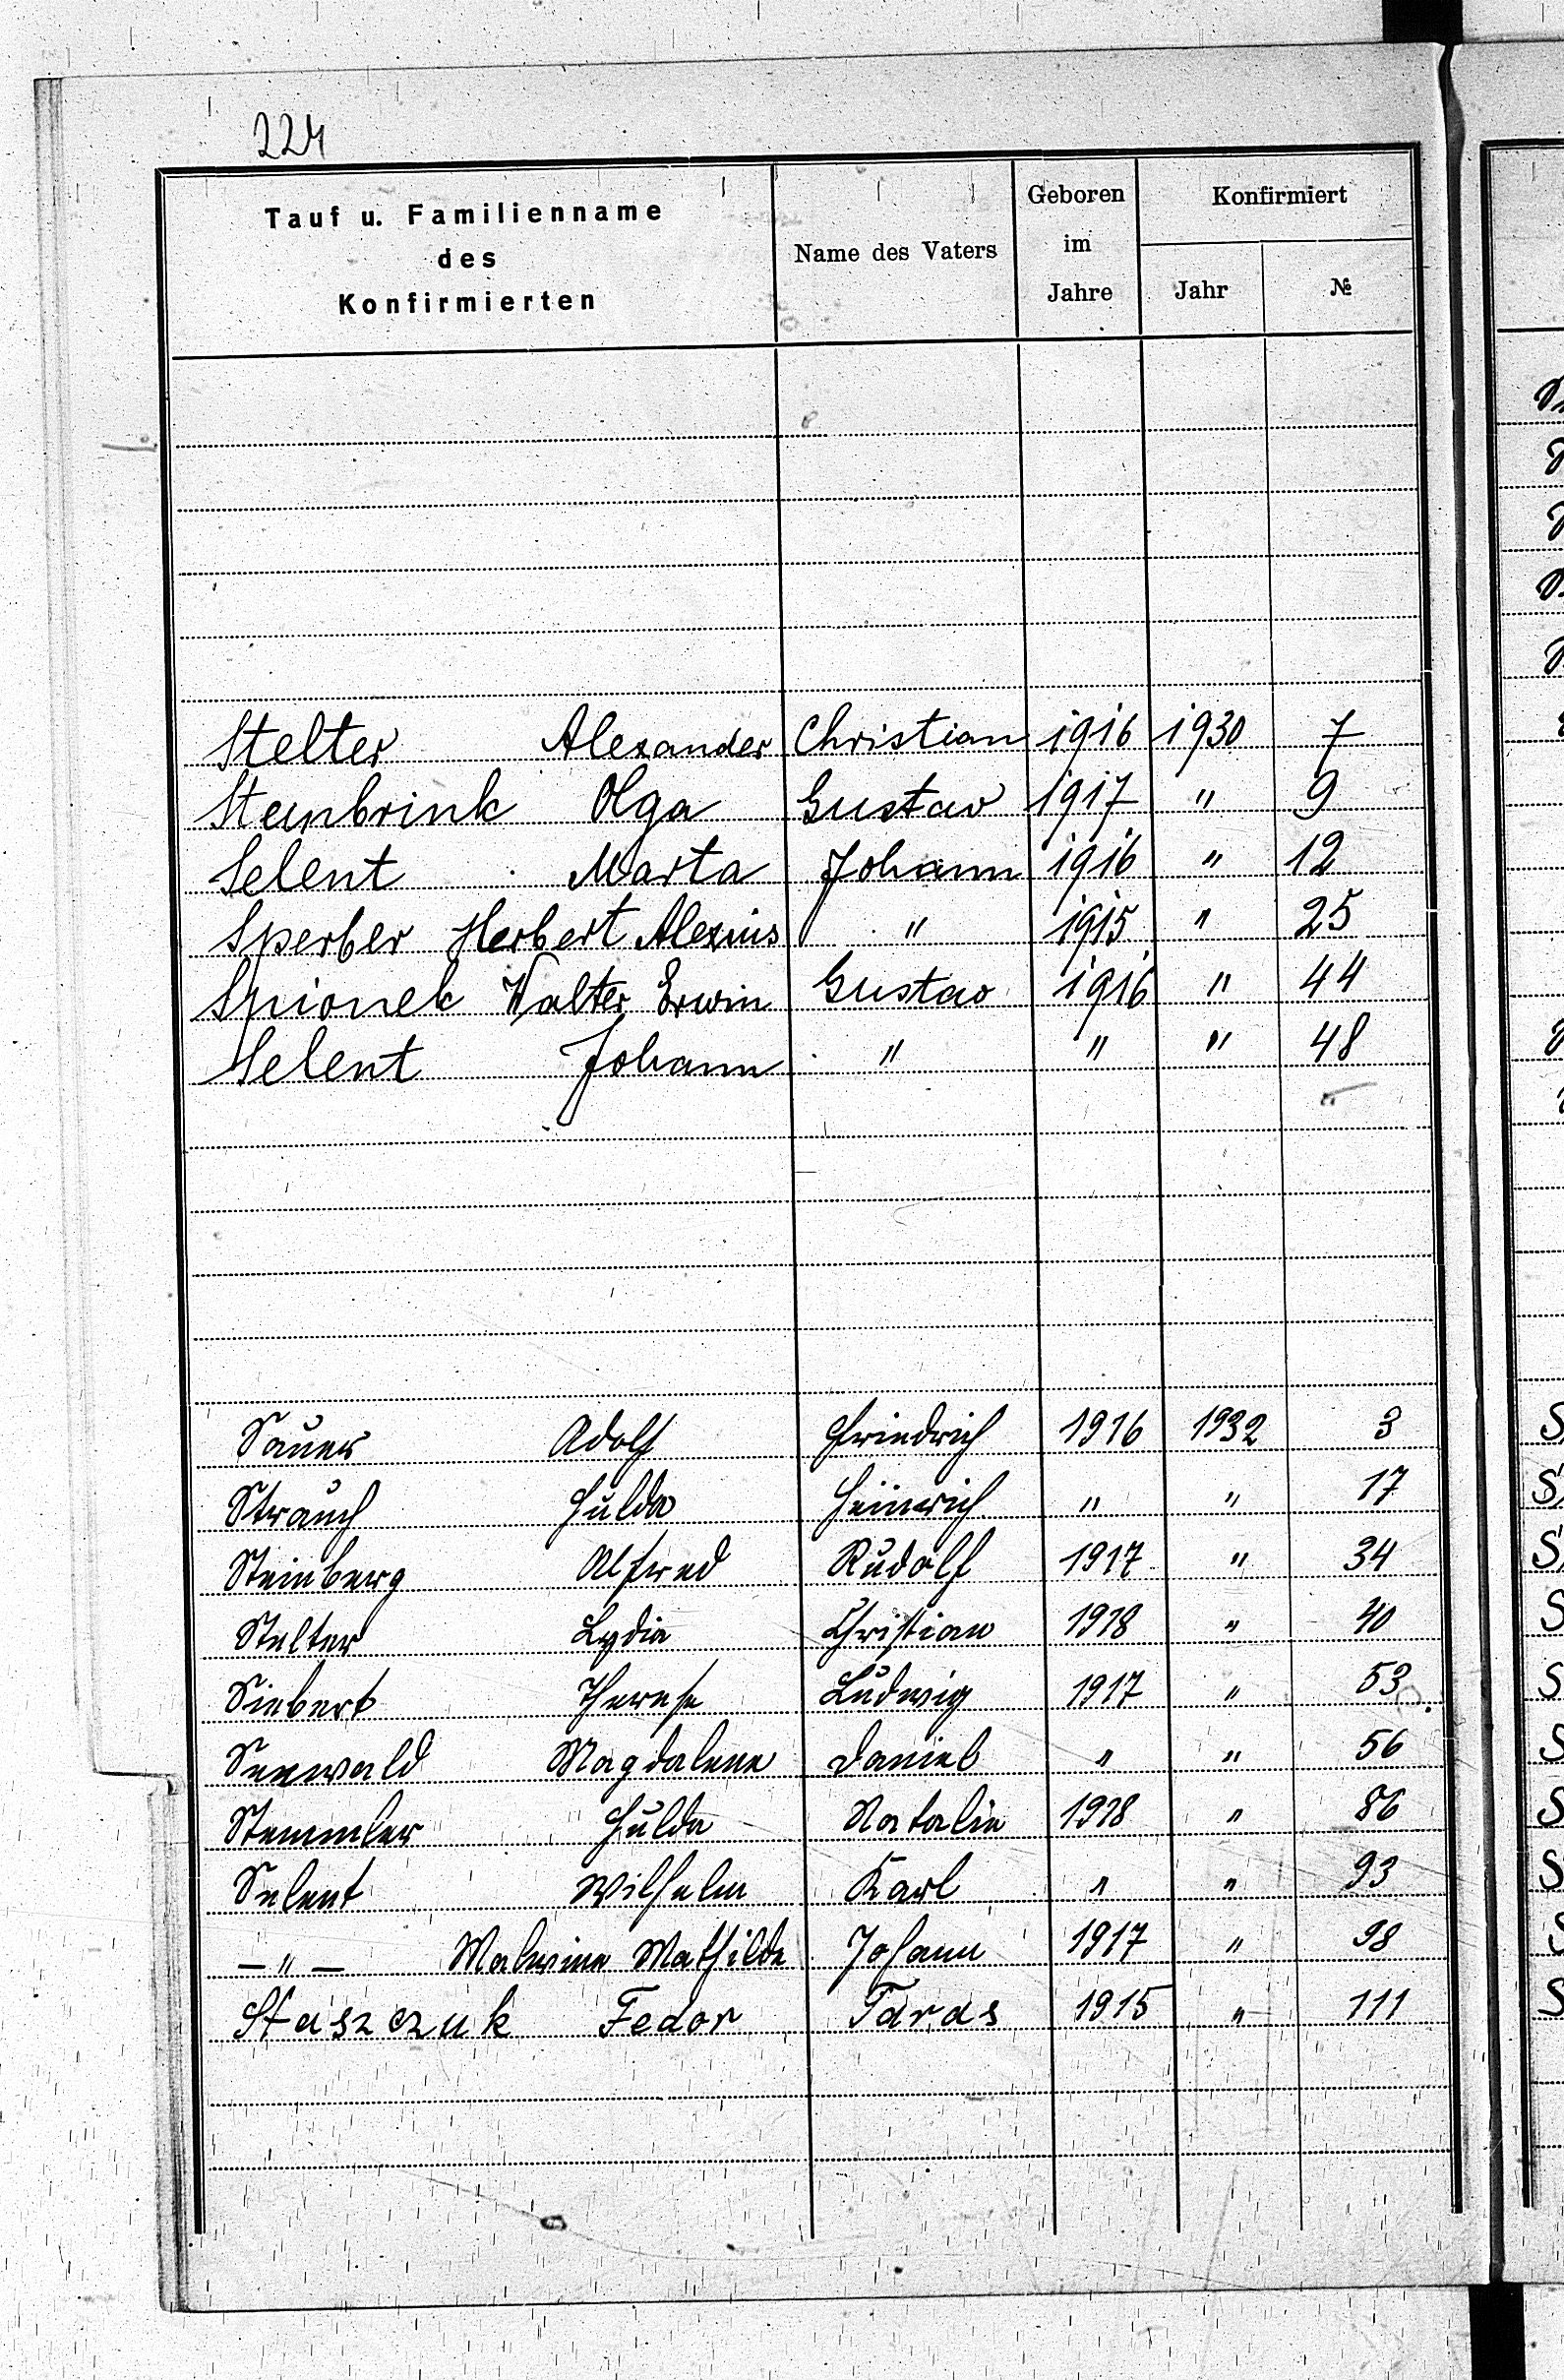 224
Tauf u. Familienname des Konfirmierten | Name des Vaters | Geboren im Jahre | Konfirmiert Jahr | №
Stelter Alexander Christian 1916 1930 7
Steinbrink Olga Gustav 1917 " 9
Selent Marta Johann 1916 " 12
Sperber Herbert Alexius " 1915 " 25
Spionek Walter Erwin Gustav 1916 " 44
Selent Johann " " " 48
Sauer Adolf Friedrich 1916 1932 3
Strauch Hulda Heinrich " " 17
Steinberg Alfred Rudolf 1917 " 34
Stelter Lydia Christian 1918 " 40
Siebert Therese Ludwig 1917 " 53
Seewald Magdalene Daniel " " 56
Stemmler Hulda Natalie 1918 " 86
Selent Wilhelm Karl " " 93
— " — Malwine Mathilde Johann 1917 " 98
Staszczuk Fedor Taras 1915 " 111